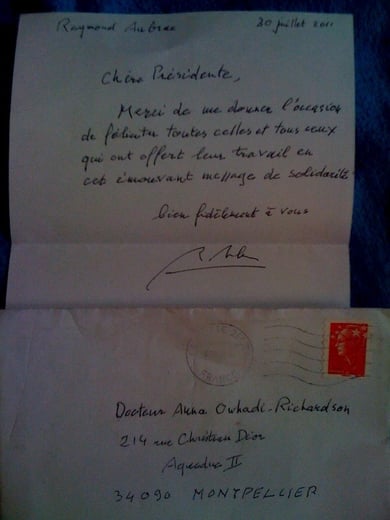 Raymond Aubrac 30 juillet 2011
Chère Présidente,
Merci de me donner l'occasion
de féliciter toutes celles et tous ceux
qui ont offert leur travail en
cet émouvant message de solidarité
bien fidèlement à vous
FRANCE
Docteur Anna Owhadi-Richardson
214 rue Christian Dior
Aquadua II
34090 MONTPELLIER